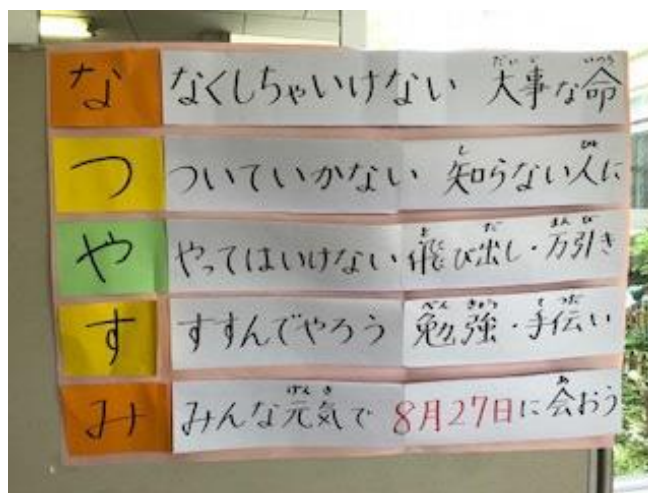 な なくしちゃいけない 大事な命
つ ついていかない 知らない人に
や やってはいけない 飛び出し・万引き
す すすんでやろう 勉強・手伝い
み みんな元気で 8月27日に会おう